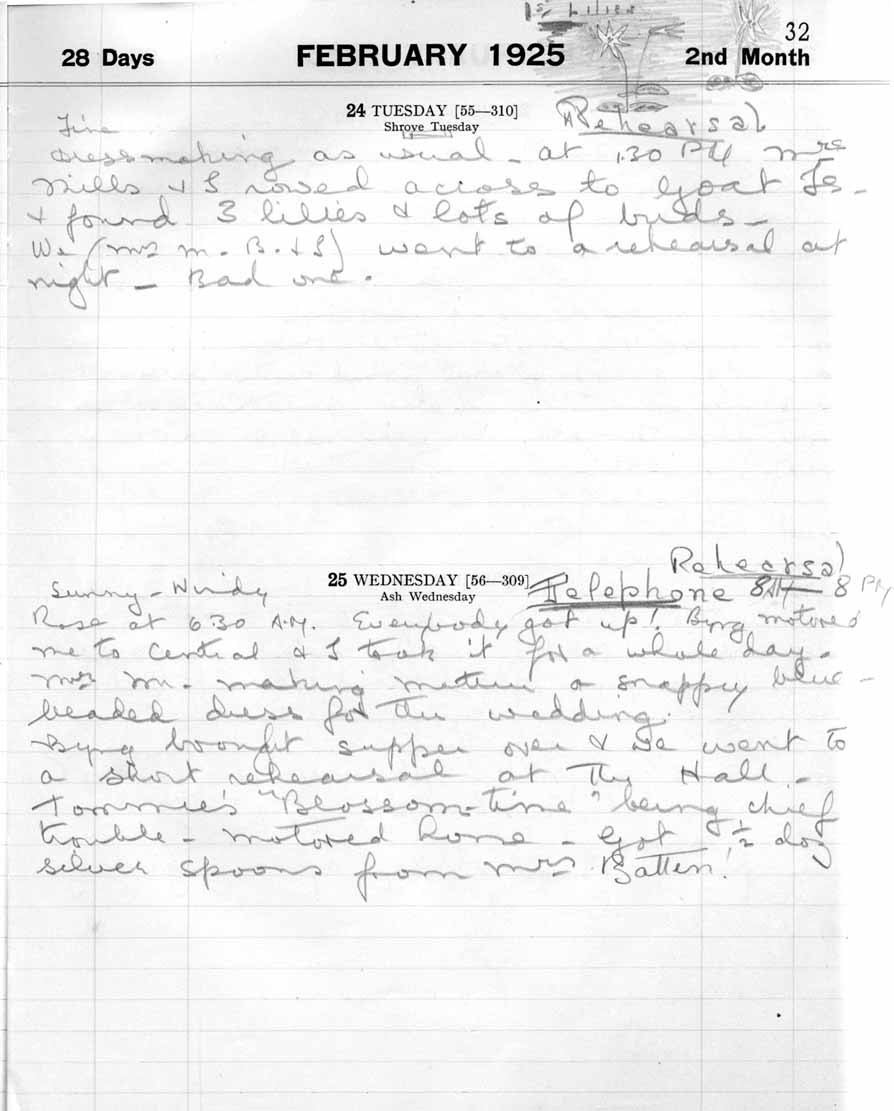 1st Lilies
32
28 Days FEBRUARY 1925 2nd Month
24 TUESDAY [55—310]
Shrove Tuesday
Rehearsal
Fine
Dressmaking as usual - at 1.30 PM Mrs
Mills & I rowed across to Goat Is -
& found 3 lilies & lots of buds -
We (Mrs M. B. & I) went to a rehearsal at
night - Bad one.
Rehearsal
25 WEDNESDAY [56—309]
Ash Wednesday
Telephone 8 AM - 8 PM
Sunny - Windy
Rose at 6.30 A.M. Everybody got up! Byng motored
me to Central & I took it for a whole day -
Mrs M. making a snappy blue -
beaded dress for the wedding.
Byng brought supper over & we went to
a short rehearsal at The Hall -
Tommie's "Blossom-time" being chief
trouble - motored home - Got ½ doz
silver spoons from Mrs Batten!